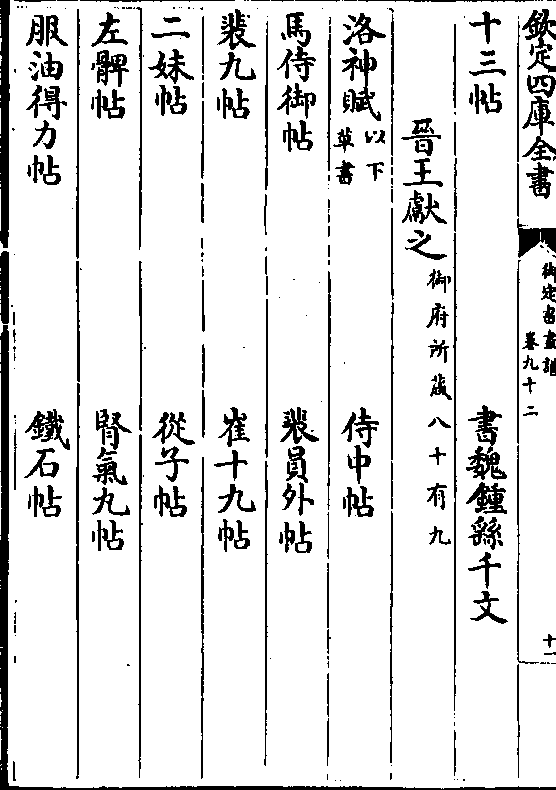 欽定四庫全書
御定書畫譜
卷九十二
十一
十三帖　書魏鍾繇千文
晉王獻之御府所藏八十有九
洛神賦以下草書　侍中帖
馬侍御帖　裴員外帖
裴九帖　崔十九帖
二妹帖　從子帖
左髀帖　腎氣丸帖
服油得力帖　鐵石帖